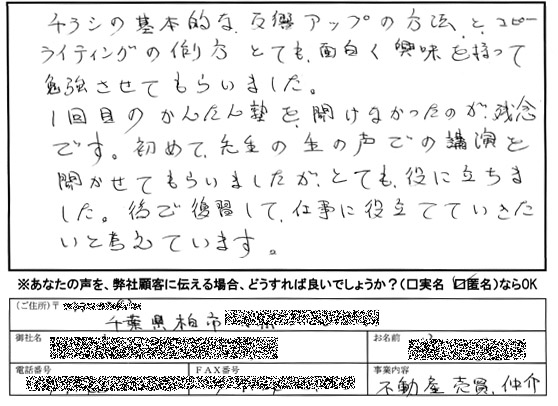 チラシの基本的な反響アップの方法と、コピー
ライティングの作り方 とても、面白く興味を持って
勉強させてもらいました。
1回目のかんたん塾を、聞けなかったのが、残念
です。初めて、先生の生の声での講演を
聞かせてもらいましたが、とても、役に立ちま
した。後で復習して、仕事に役立てていきた
いと考えています。
※あなたの声を、弊社顧客に伝える場合、どうすれば良いでしょうか？(□実名 ☑匿名)ならOK
(ご住所)〒
千葉県柏市
御社名
お名前
電話番号
FAX番号
事業内容
不動産売買、仲介